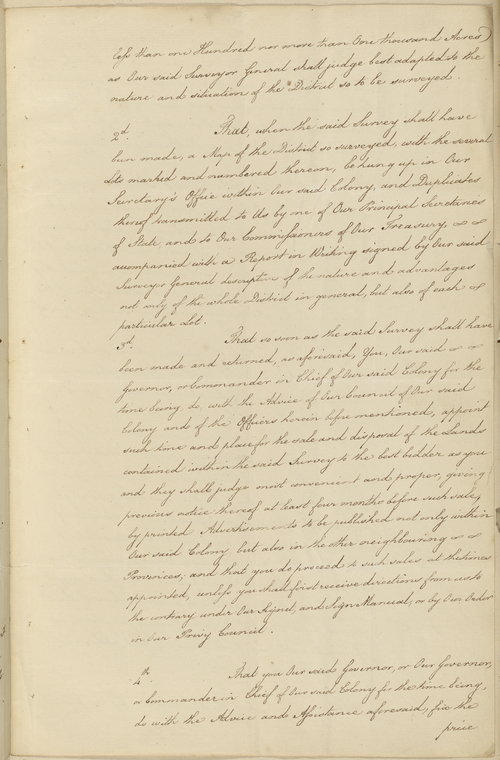 less than one Hundred nor more than One thousand Acres
as Our said Surveyor General shall judge best adapted to the
nature and situation of the District so to be surveyed.
2d. That, when the said Survey shall have
been made, a Map of the District so surveyed, with the several
Lots marked and numbered thereon, be hung up in Our
Secretary's Office within Our said Colony, and Duplicates
thereof transmitted to Us by one of Our Principal Secretaries
of State and to Our Commissioners of Our Treasury,
accompanied with a Report in Writing signed by Our said
Surveyor General descriptive of the nature and advantages
not only of the whole District in general, but also of each
particular Lot.
3d. That so soon as the said Survey shall have
been made and returned, as aforesaid, You, Our said
Governor, or Commander in Chief of Our said Colony for the
time being, do, with the Advice of Our Council of Our said
Colony and of the Officers herein before mentioned, appoint
such time and place for the sale and disposal of the Lands
contained within the said Survey to the best bidder as you
and they shall judge most convenient and proper, giving
previous notice thereof at least four months before such sale,
by printed Advertisements to be published not only within
Our said Colony but also in the other neighbouring
Provinces; and that you do proceed to such sales at the times
appointed, unless you shall first receive directions from us to
the contrary under Our Signet, and Sign Manual, or by Our Order
in Our Privy Council.
4th. That you Our said Governor, or Our Governor,
or Commander in Chief of Our said Colony for the time being,
do with the Advice and Assistance aforesaid, fix the
price